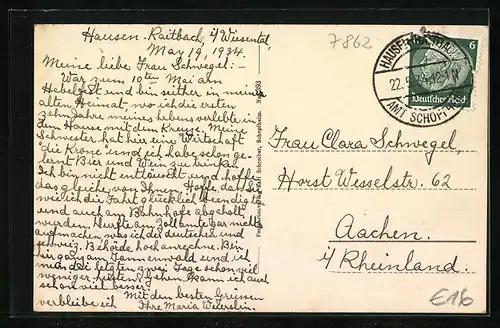 Hausen-Raitbach, i/Wiesental,
May 19, 1934.
Meine liebe Frau Schwegel:-
War zum 10ten Mai am
Hebelfest und bin seither in meiner
alten Heimat, wo ich die ersten
zehn Jahre meines lebens verlebte in
dem Hause mit dem Kreuze. Meine
Schwester hat hier eine Wirtschaft
"die Krone" und ich habe schon ge-
lernt Bier und Wein zu trinken.
Ich bin nicht enttäuscht und hoffe
das gleiche von Ihnen. Hoffe daß Sie
wie ich die Fahrt glücklich beendigte
und auch am Bahnhofe abgeholt
wurden. Mußte am Zollamte gar nichts
aufmachen, was ich die deutschen und
schweiz. Behörde hoch anrechne. Bin
hier ganz am Tannenwald und ich
die letzten zwei Tage schon viel
weniger Husten. Gehen kann ich auch
schon viel besser.
Mit den besten Grüssen
verbleibe ich Ihre Maria
7862
HAUSEN
22.5.34.12-1
AMT SCHOPFH
6
Deutsches Reich
Frau Clara Schwegel,
Horst Wesselstr. 62
Aachen
i/Rheinland.
€16